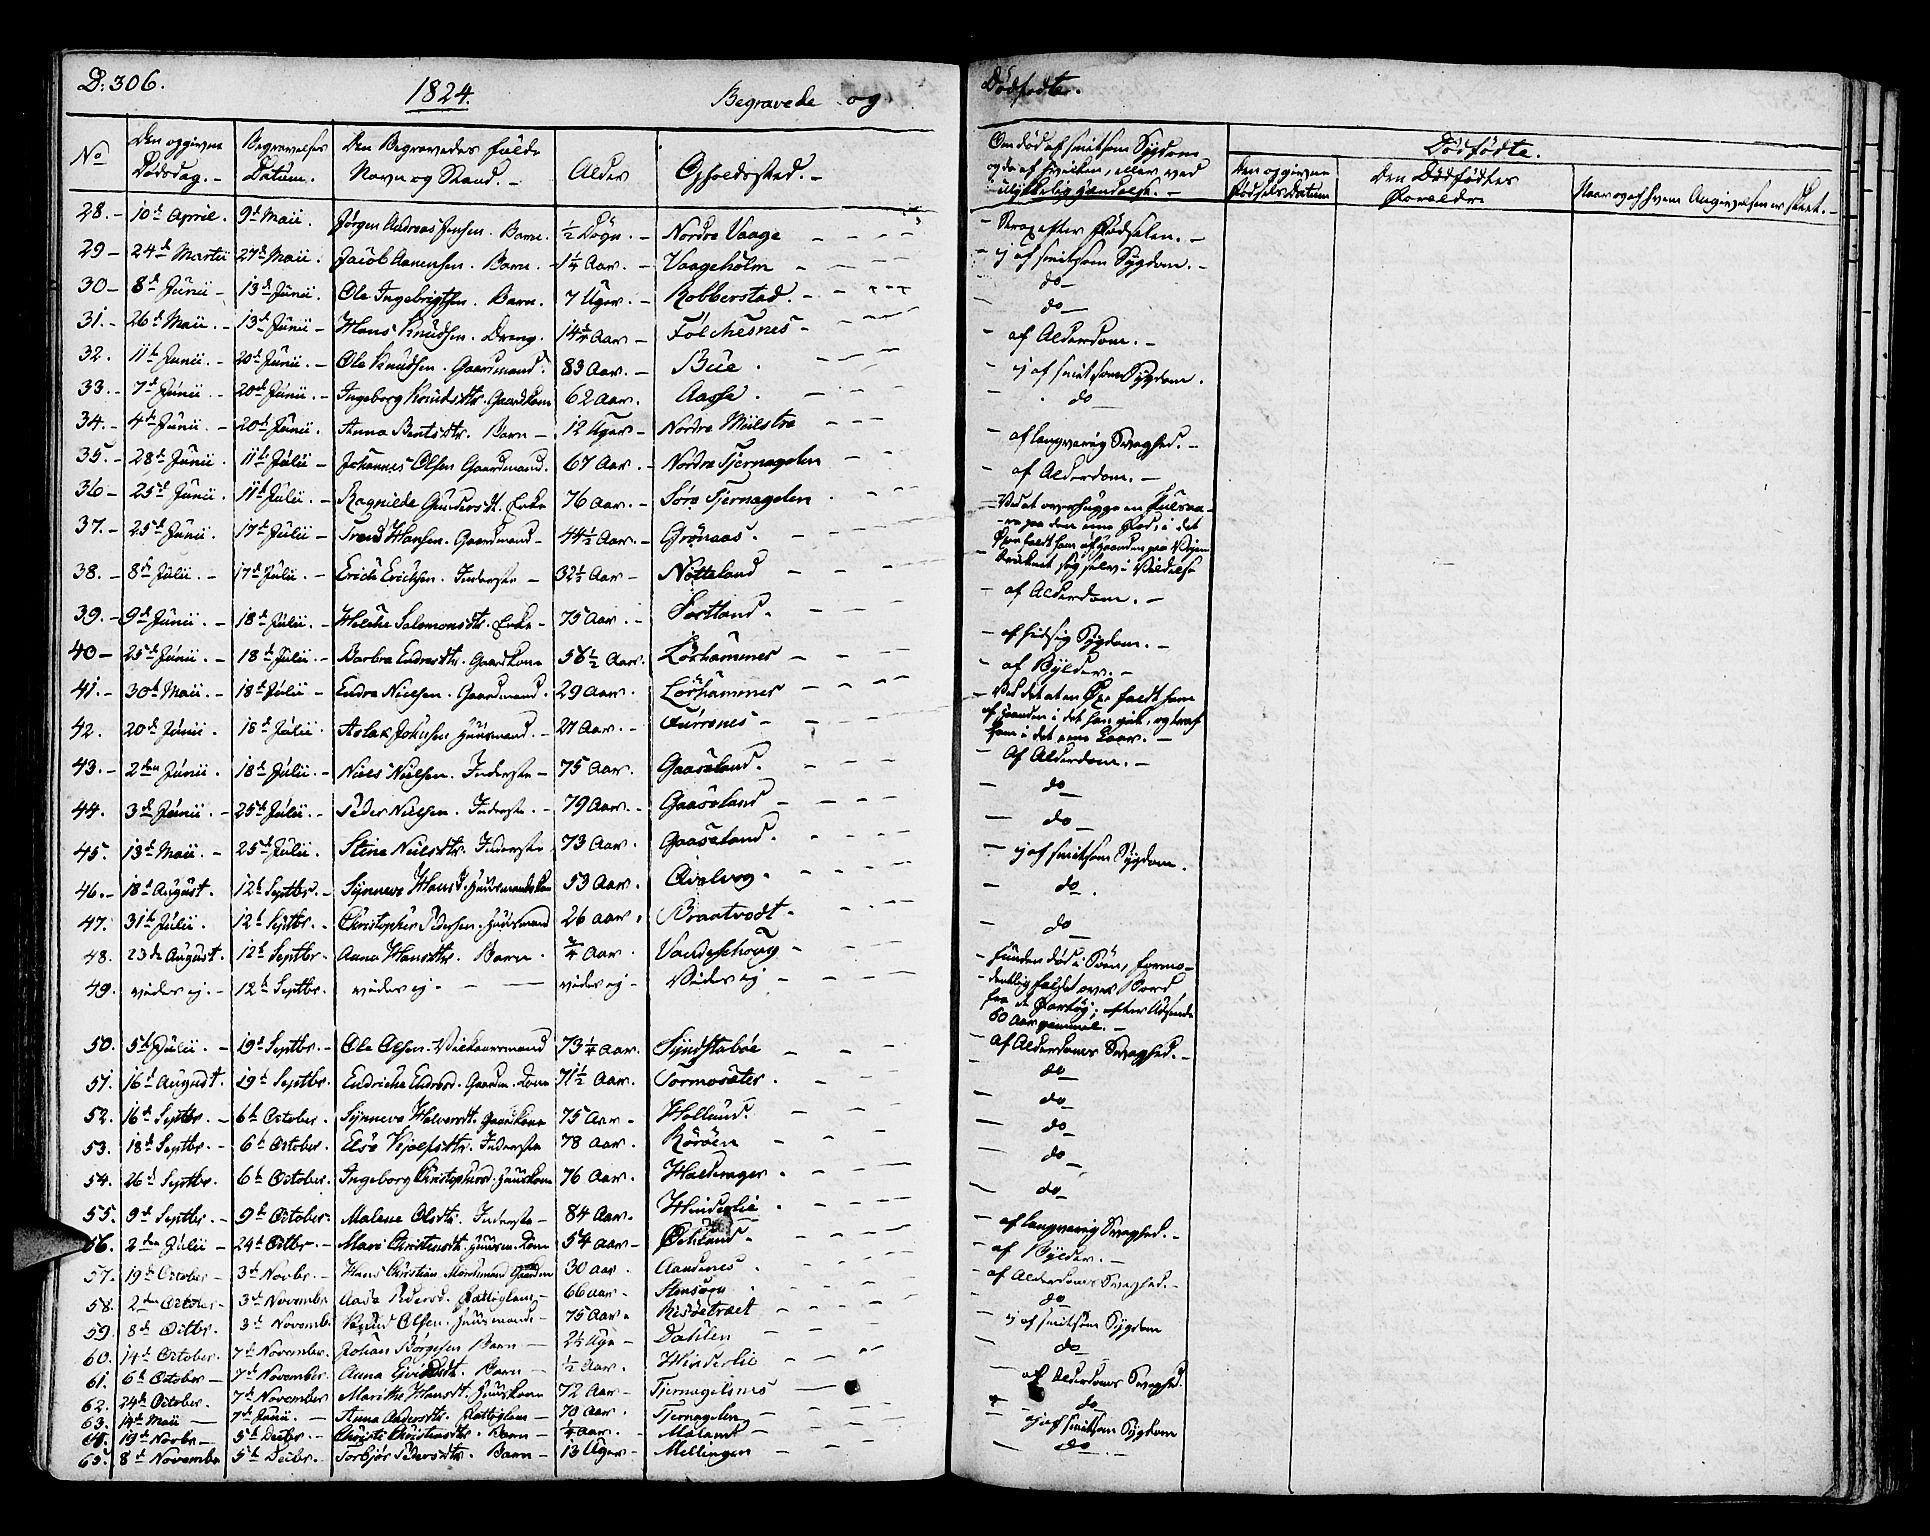 D: 306.
1824.
Begravede og Dødfødte.
No
Den opgivne Dødsdag. -
Begravelses Datum. -
Den Begravedes fulde Navn og Stand. -
Alder
Opholdssted. -
Om død af smitsom Sygdom og da af hvilken, eller ved ulykkelig Hændelse. -
Dødfødte.
Den opgivne Fødsels Datum
Den Dødfødtes Forældre
Naar og af hvem Angivelsen er skeet. -
28. - 10de April. 9de Maii. Jørgen Andreas Jensen. Barn. ½ Døgn. - Nordre Vaage - Strax efter Fødselen. -
29 - 24de Martii 27de Maii. Jacob Aanensen. Barn. - 1¼ Aar. - Vaageholm - ej af smitsom Sygdom. -
30 - 8de Junii - 13de Junii. Ole Ingebrigtsen. Barn. 7 Uger. - Robberstad. - do -
31. - 26de Maii. - 13de Junii - Hans Knudsen. Dreng. 14¼ Aar - Folchesnes - do -
32. 11te Junii. - 20de Junii. - Ole Knudsen. Gaardmand. 83 Aar. - Bue. - af Alderdom. -
33. - 7de Junii. - 20de Junii. - Ingeborg Knudsdtr. Gaardkone 62 Aar. Aasse. - ej af smitsom Sygdom.
34. - 4de Junii. - 20de Junii. Anna Bentsdtr. Barn - 12 Uger - Nordre Møilstre - do -
35. - 28de Junii. 11te Julii - Johannes Olsen Gaardmand. 67 Aar. - Nordre Tjernagelen - af langvarig Svaghed. -
36 - 25de Junii. 11te Julii - Ragnilde Gundersdt. Enke 76 Aar. - Søre Tjernagelen. - af Alderdom. -
37. - 25de Junii. 17de Julii - Trond Hansen. Gaardmand - 44½ Aar - Grønaas. - Ved at overhugge en Pulsaa-
re paa den ene Fod, i det
Øxen faldt ham af Haanden paa Vejen
38. - 8de Julii. - 17de Julii. - Erich Erichsen. Inderste - 32½ Aar - Nøtteland - druknet sig selv i Vildelse
39. - 9de Junii. - 18de Julii. - Helche Salomonsdtr. Enke - 75 Aar. - Sortland. - af Alderdom. -
40 - 25de Junii. - 18de Julii. - Barbra Endresdtr. Gaardkone 56½ Aar. Lørhammer - af hidsig Sygdom. -
41. - 30te Maii. - 18de Julii - Endre Nielsen. Gaardmand. 29 Aar. Lørhammer - af Bylder. -
42. 20de Junii. 18de Julii. Aslak Johnsen Huusmand. - 27 Aar. - Furrenes - Ved det at en Øxe faldt ham
af Haanden i det han gik, og traf
ham i det ene Laar. -
43. - 2den Junii. 18de Julii. Niels Nielsen. Inderste - 75 Aar. Gaaseland. - Af Alderdom. -
44. 3de Junii. - 25de Julii. - Peder Nielsen. Inderste. - 79 Aar. - Gaaseland - do -
45. 13de Maii. - 25de Julii. Stine Nielsdtr. Inderste 73 Aar. Gaaseland. - do -
46. - 18de August. 12te Septbr. - Synneve Hansd. Huusmandskone 53 Aar. Qvalvog. - ej af smitsom Sygdom.
47. 31te Julii. 12te Septbr. - Christopher Pedersen. Huusmand 26 Aar. Braatvedt. - do.
48. 23de August. 12te Septbr. - Anna Hansdtr. Barn. ¾ Aar. Vandeschoag - do -
49. vides ej. - 12te Septbr. vides ej - vides ej - Vides ej - Funden død i Søen, formo-
dentlig faldet over Bord
fra et Fartøj; efter Udseende
60 Aar gammel. -
50. 5te Julii. - 19de Septbr. - Ole Olsen. Vilkaarsmand 73¼ Aar. Syndstabøe - af Alderdoms Svaghed. -
51. 16de August. 19de Septbr. - Endriche Endresd. Gaardm. Kone 71½ Aar. Tormosæter. - do -
52. 16de Septbr. - 6te October. Synneve Halvorsdt. Gaardkone 75 Aar - Holland. - do -
53. 18de Septbr. - 6te October. Else Kjelsdtr. Inderste 78 Aar. Rørøen - do -
54. 26de Septbr. 6te October. Ingeborg Christophersd. Huuskone 76 Aar. Haldanger - do -
55. 9de Septbr. - 9de October. Malene Olsdtr. Inderste - 84 Aar. Hinderlie - do -
56. 2den Julii - 24de Octbr. - Mari Christensdt. Huusm. Kone 54 Aar - Øchland - af langvarig Svaghed. -
57. 19de October - 3de Novbr. - Hans Christian 30 Aar. Aandenes. - af Bylder. -
58. 2den October - 3de November Aase Pedersd. Fattiglem - 66 Aar - - af Alderdoms Svaghed. -
59. 8de Octbr. 3de Novembr. Knud Olsen. Huusmand - 75 Aar. Risøetraet - do -
60. 14de October. 7de November. Johan Børgesen Barn - 2½ Uge - Dahlen - ej af smitsom Sygdom
61. 6te October - 7de November. Anna Barn - ½ Aar. Hinderlie - do -
62. 24de October. 7de November. Marithe Hansdt. Huuskone 72 Aar - Tjernagelsnes - af Alderdoms Svaghed.
63. 14de Maii - 7de Junii. - Anna Andersdtr. Fattiglem - 70 Aar. Tjernagelen - do -
64. 19de Novbr. - 5te Decbr. - Christi Christensdtr. Barn - ¼ Aar. - ej af smitsom Sygdom
65. 8de Novembr 5te Decbr. - Torbjør Pedersdtr. Barn - 13 Uger - Mellingen - do -